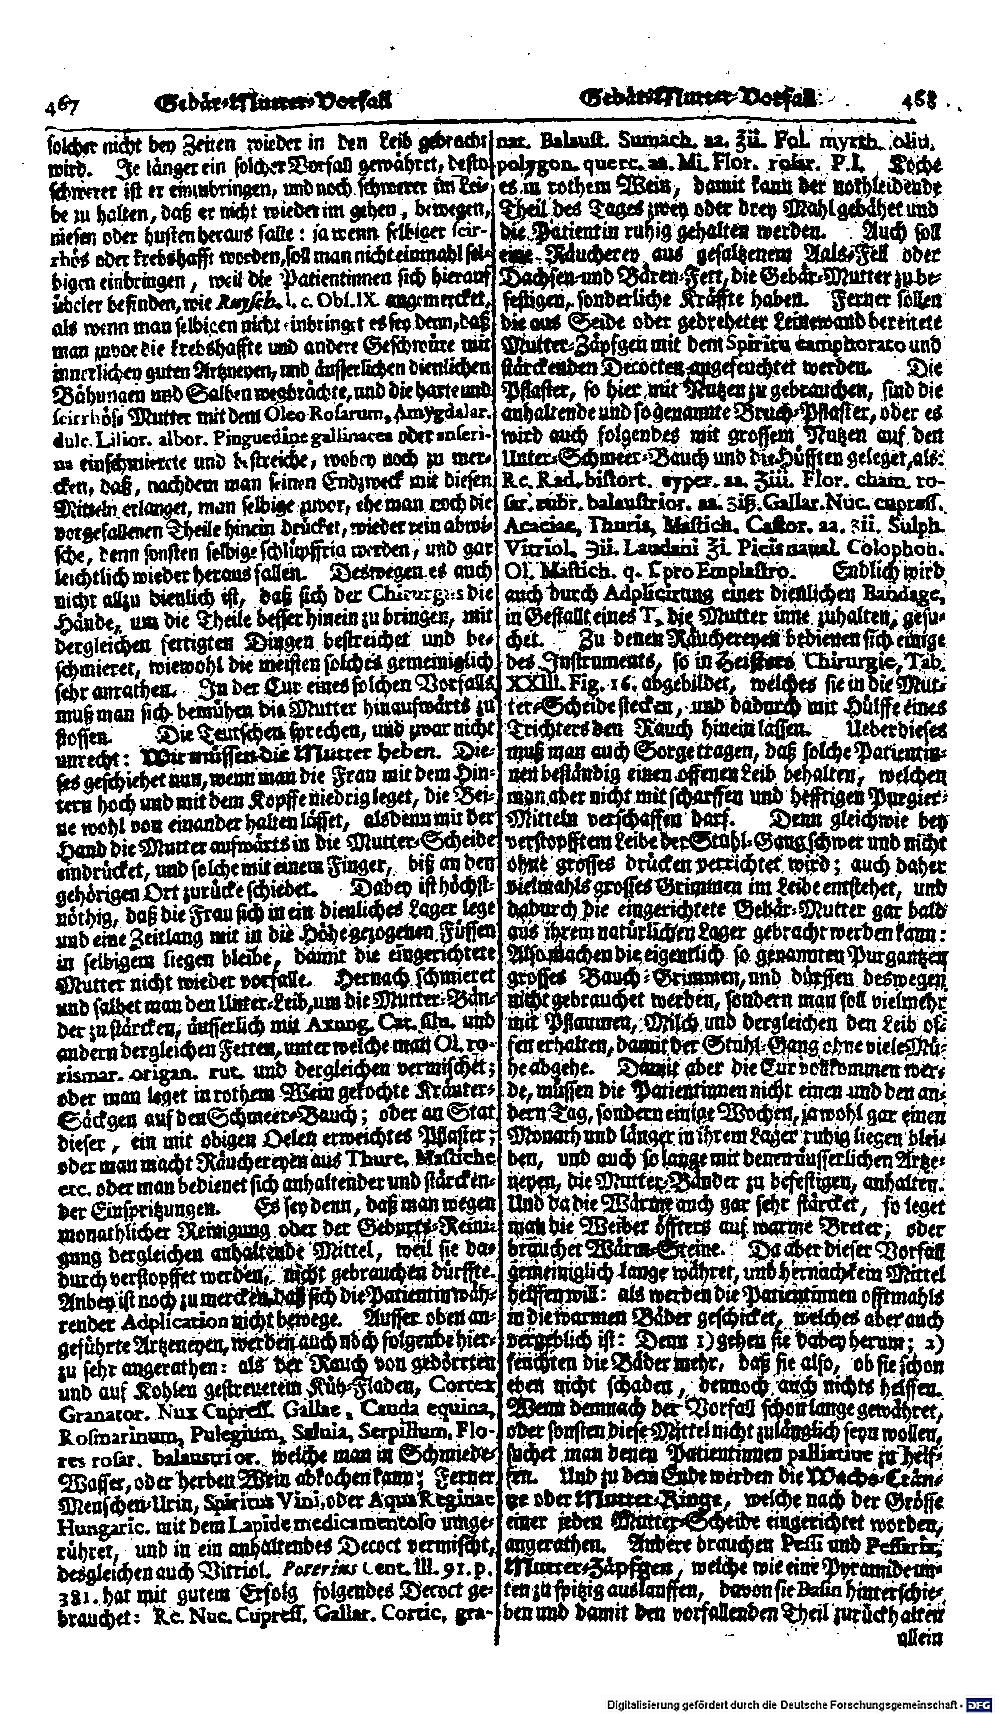 467 Gebär-Mutter-Vorfall
solcher nicht bey Zeiten wieder in den Leib gebracht
wird. Je länger ein solcher Vorfall gewähret, desto
schwerer ist er einzubringen, und noch schwerer im Lei-
be zu halten, daß er nicht wieder im gehen, bewegen,
niesen oder husten heraus falle: ja wenn selbiger scir-
rhös oder krebshafft worden, soll man nicht einmahl sel-
bigen einbringen, weil die Patientinnen sich hierauf
übeler befinden, wie Ruysch. l. c. Obs. IX. angemercket,
als wenn man selbigen nicht einbringet es sey denn, daß
man zuvor die krebshaffte und andere Geschwüre mit
innerlichen guten Artzneyen, und äusserlichen dienlichen
Bähungen und Salben wegbrächte, und die harte und
scirrhöse Mutter mit dem Oleo Rosarum, Amygdalar.
dulc. Lilior. albor. Pinguedine gallinacea oder anseri-
na einschmierete und bestreiche, wobey noch zu mer-
cken, daß, nachdem man seinen Endzweck mit diesen
Mitteln erlanget, man selbige zuvor, ehe man noch die
vorgefallenen Theile hinein drücket, wieder rein abwi-
sche, denn sonsten selbige schlüpffrig werden, und gar
leichtlich wieder heraus fallen. Deswegen es auch
nicht allzu dienlich ist, daß sich der Chirurgus die
Hände, um die Theile besser hinein zu bringen, mit
dergleichen fertigten Dingen bestreichet und be-
schmieret, wiewohl die meisten solches gemeiniglich
sehr anrathen. In der Cur eines solchen Vorfalls
muß man sich bemühen die Mutter hinaufwärts zu
stossen. Die Teutschen sprechen, und zwar nicht
unrecht: Wir müssen die Mutter heben. Die-
ses geschiehet nun, wenn man die Frau mit dem Hin-
tern hoch und mit dem Kopffe niedrig leget, die Bei-
ne wohl von einander halten lässet, alsdenn mit der
Hand die Mutter aufwärts in die Mutter-Scheide
eindrücket, und solche mit einem Finger, biß an den
gehörigen Ort zurücke schiebet. Dabey ist höchst-
nöthig, daß die Frau sich in ein dienliches Lager lege
und eine Zeitlang mit in die Höhe gezogenen Füssen
in selbigem liegen bleibe, damit die eingerichtete
Mutter nicht wieder vorfalle. Hernach schmieret
und salbet man den Unter-Leib, um die Mutter-Bän-
der zu stärcken, äusserlich mit Axung. Cat. silv. und
andern dergleichen Fetten, unter welche man Ol. ro-
rismar. origan. rut. und dergleichen vermischet;
oder man leget in rothem Wein gekochte Kräuter-
Säckgen auf den Schmeer-Bauch; oder an Statt
dieser, ein mit obigen Oelen erweichtes Pflaster;
oder man macht Räuchereyen aus Thure, Mastiche
etc. oder man bedienet sich anhaltender und stärcken-
der Einspritzungen. Es sey denn, daß man wegen
monathlicher Reinigung oder der Geburts-Reini-
gung dergleichen anhaltende Mittel, weil sie da-
durch verstopffet werden, nicht gebrauchen dürffte.
Anbey ist noch zu mercken, daß sich die Patientin wäh-
render Adplication nicht bewege. Ausser oben an-
geführte Artzeneyen, werden auch noch folgende hier-
zu sehr angerathen: als der Rauch von gedörrten
und auf Kohlen gestreuetem Küh-Fladen, Cortex
Granator. Nux Cupress. Gallae, Cauda equina,
Rosmarinum, Pulegium, Salvia, Serpillum, Flo-
res rosar. balaustrior. welche man in Schmiede-
Wasser, oder herben Wein abkochen kann; Ferner
Menschen-Urin, Spiritus Vini, oder Aqua Reginae
Hungaric. mit dem Lapide medicamentoso umge-
rühret, und in ein anhaltendes Decoct vermischt,
desgleichen auch Vitriol. Poterius Cent. III. 91. p.
381. hat mit gutem Erfolg folgendes Decoct ge-
brauchet: Rc. Nuc. Cupress. Gallar. Cortic. gra-
Gebär-Mutter-Vorfall 468
nat. Balaust. Sumach. aa. Ʒii. Fol. myrth. oliv.
polygon. querc. aa. Mi. Flor. rosar. P. I. Koche
es in rothem Wein, damit kann der nothleidende
Theil des Tages zwey oder drey Mahl gebähet und
die Patientin ruhig gehalten werden. Auch soll
eine Räucherey aus gesaltzenem Aals-Fell oder
Dachsen- und Bären-Fett, die Gebär-Mutter zu be-
festigen, sonderliche Kräffte haben. Ferner sollen
die aus Seide oder gedreheter Leinewand bereitete
Mutter-Zäpfgen mit dem Spiritu camphorato und
stärckenden Decocten angefeuchtet werden. Die
Pflaster, so hier mit Nutzen zu gebrauchen, sind die
anhaltende und so genannte Bruch-Pflaster, oder es
wird auch folgendes mit grossem Nutzen auf den
Unter-Schmeer-Bauch und die Hüfften geleget, als:
Rc. Rad. bistort. cyper. aa. Ʒiii. Flor. cham. ro-
sar. rubr. balaustrior. aa. Ʒiß. Gallar. Nuc. cupress.
Acaciae, Thuris, Mastich. Castor. aa. Ʒii. Sulph.
Vitriol. Ʒii. Laudani Ʒi. Picis naval. Colophon.
Ol. Mastich. q. s. pro Emplastro. Endlich wird
auch durch Adplicirung einer dienlichen Bandage,
in Gestallt eines T. die Mutter inne zuhalten, gesu-
chet. Zu denen Räuchereyen bedienen sich einige
des Instruments, so in Heisters Chirurgie, Tab.
XXIII. Fig. 16. abgebildet, welches sie in die Mut-
ter-Scheide stecken, und dadurch mit Hülffe eines
Trichters den Rauch hinein lassen. Ueber dieses
muß man auch Sorge tragen, daß solche Patientin-
nen beständig einen offenen Leib behalten, welchen
man aber nicht mit scharffen und hefftigen Purgier-
Mitteln verschaffen darf. Denn gleichwie bey
verstopfftem Leibe der Stuhl-Gang schwer und nicht
ohne grosses drücken verrichtet wird; auch daher
vielmahls grosses Grimmen im Leibe entstehet, und
dadurch die eingerichtete Gebär-Mutter gar bald
aus ihrem natürlichen Lager gebracht werden kann:
Also machen die eigentlich so genannten Purgantzen
grosses Bauch-Grimmen, und dürffen deswegen
nicht gebrauchet werden, sondern man soll vielmehr
mit Pflaumen, Milch und dergleichen den Leib of-
fen erhalten, damit der Stuhl-Gang ohne viele Mü-
he abgehe. Damit aber die Cur vollkommen wer-
de, müssen die Patientinnen nicht einen und den an-
dern Tag, sondern einige Wochen, ja wohl gar einen
Monath und länger in ihrem Lager ruhig liegen blei-
ben, und auch so lange mit denen äusserlichen Artze-
neyen, die Mutter-Bänder zu befestigen, anhalten.
Und da die Wärme auch gar sehr stärcket, so leget
man die Weiber öffters auf warme Breter; oder
brauchet Wärm-Steine. Da aber dieser Vorfall
gemeiniglich lange währet, und hernach kein Mittel
helffen will: als werden die Patientinnen offtmahls
in die warmen Bäder geschicket, welches aber auch
vergeblich ist: Denn 1) gehen sie dabey herum; 2)
feuchten die Bäder mehr, daß sie also, ob sie schon
eben nicht schaden, dennoch auch nichts helffen.
Wenn demnach der Vorfall schon lange gewähret,
oder sonsten diese Mittel nicht zulänglich seyn wollen,
suchet man denen Patientinnen palliative zu helf-
fen. Und zu dem Ende werden die Wachs-Crän-
ge oder Mutter-Ringe, welche nach der Grösse
einer jeden Mutter-Scheide eingerichtet worden,
angerathen. Andere brauchen Pessi und Pessaria,
Mutter-Zäpfgen, welche wie eine Pyramide un-
ten zu spitzig auslauffen, davon sie Basin hinterschie-
ben und damit den vorfallenden Theil zurück halten
allein
Digitalisierung gefördert durch die Deutsche Forschungsgemeinschaft - DFG